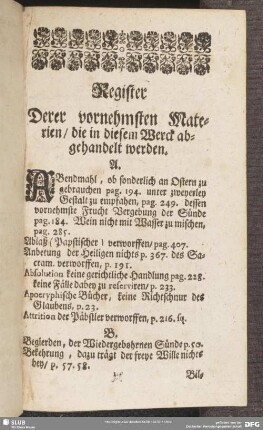 Register
Derer vornehmsten Mate-
rien / die in diesem Werck ab-
gehandelt werden.
A.
ABendmahl, ob sonderlich an Ostern zu
gebrauchen pag. 194. unter zweyerley
Gestalt zu empfahen, pag. 249. dessen
vornehmste Frucht Vergebung der Sünde
pag. 184. Wein nicht mit Wasser zu mischen,
pag. 285.
Ablaß (Papstischer) verworffen / pag. 407.
Anbetung der Heiligen nichts p. 367. des Sa-
cram. verworffen, p. 191.
Absolution keine gerichtliche Handlung pag. 228.
keine Fälle dabey zu reserviren / p. 233.
Apocryphische Bücher, keine Richtschnur des
Glaubens, p. 23.
Attrition der Päbstler verworffen, p. 216. sq.
B.
Begierden, der Wiedergebohrnen Sünde p. 50.
Bekehrung, dazu trägt der freye Wille nichts
bey / p. 57. 58.
Bil-
SLUB
DFG